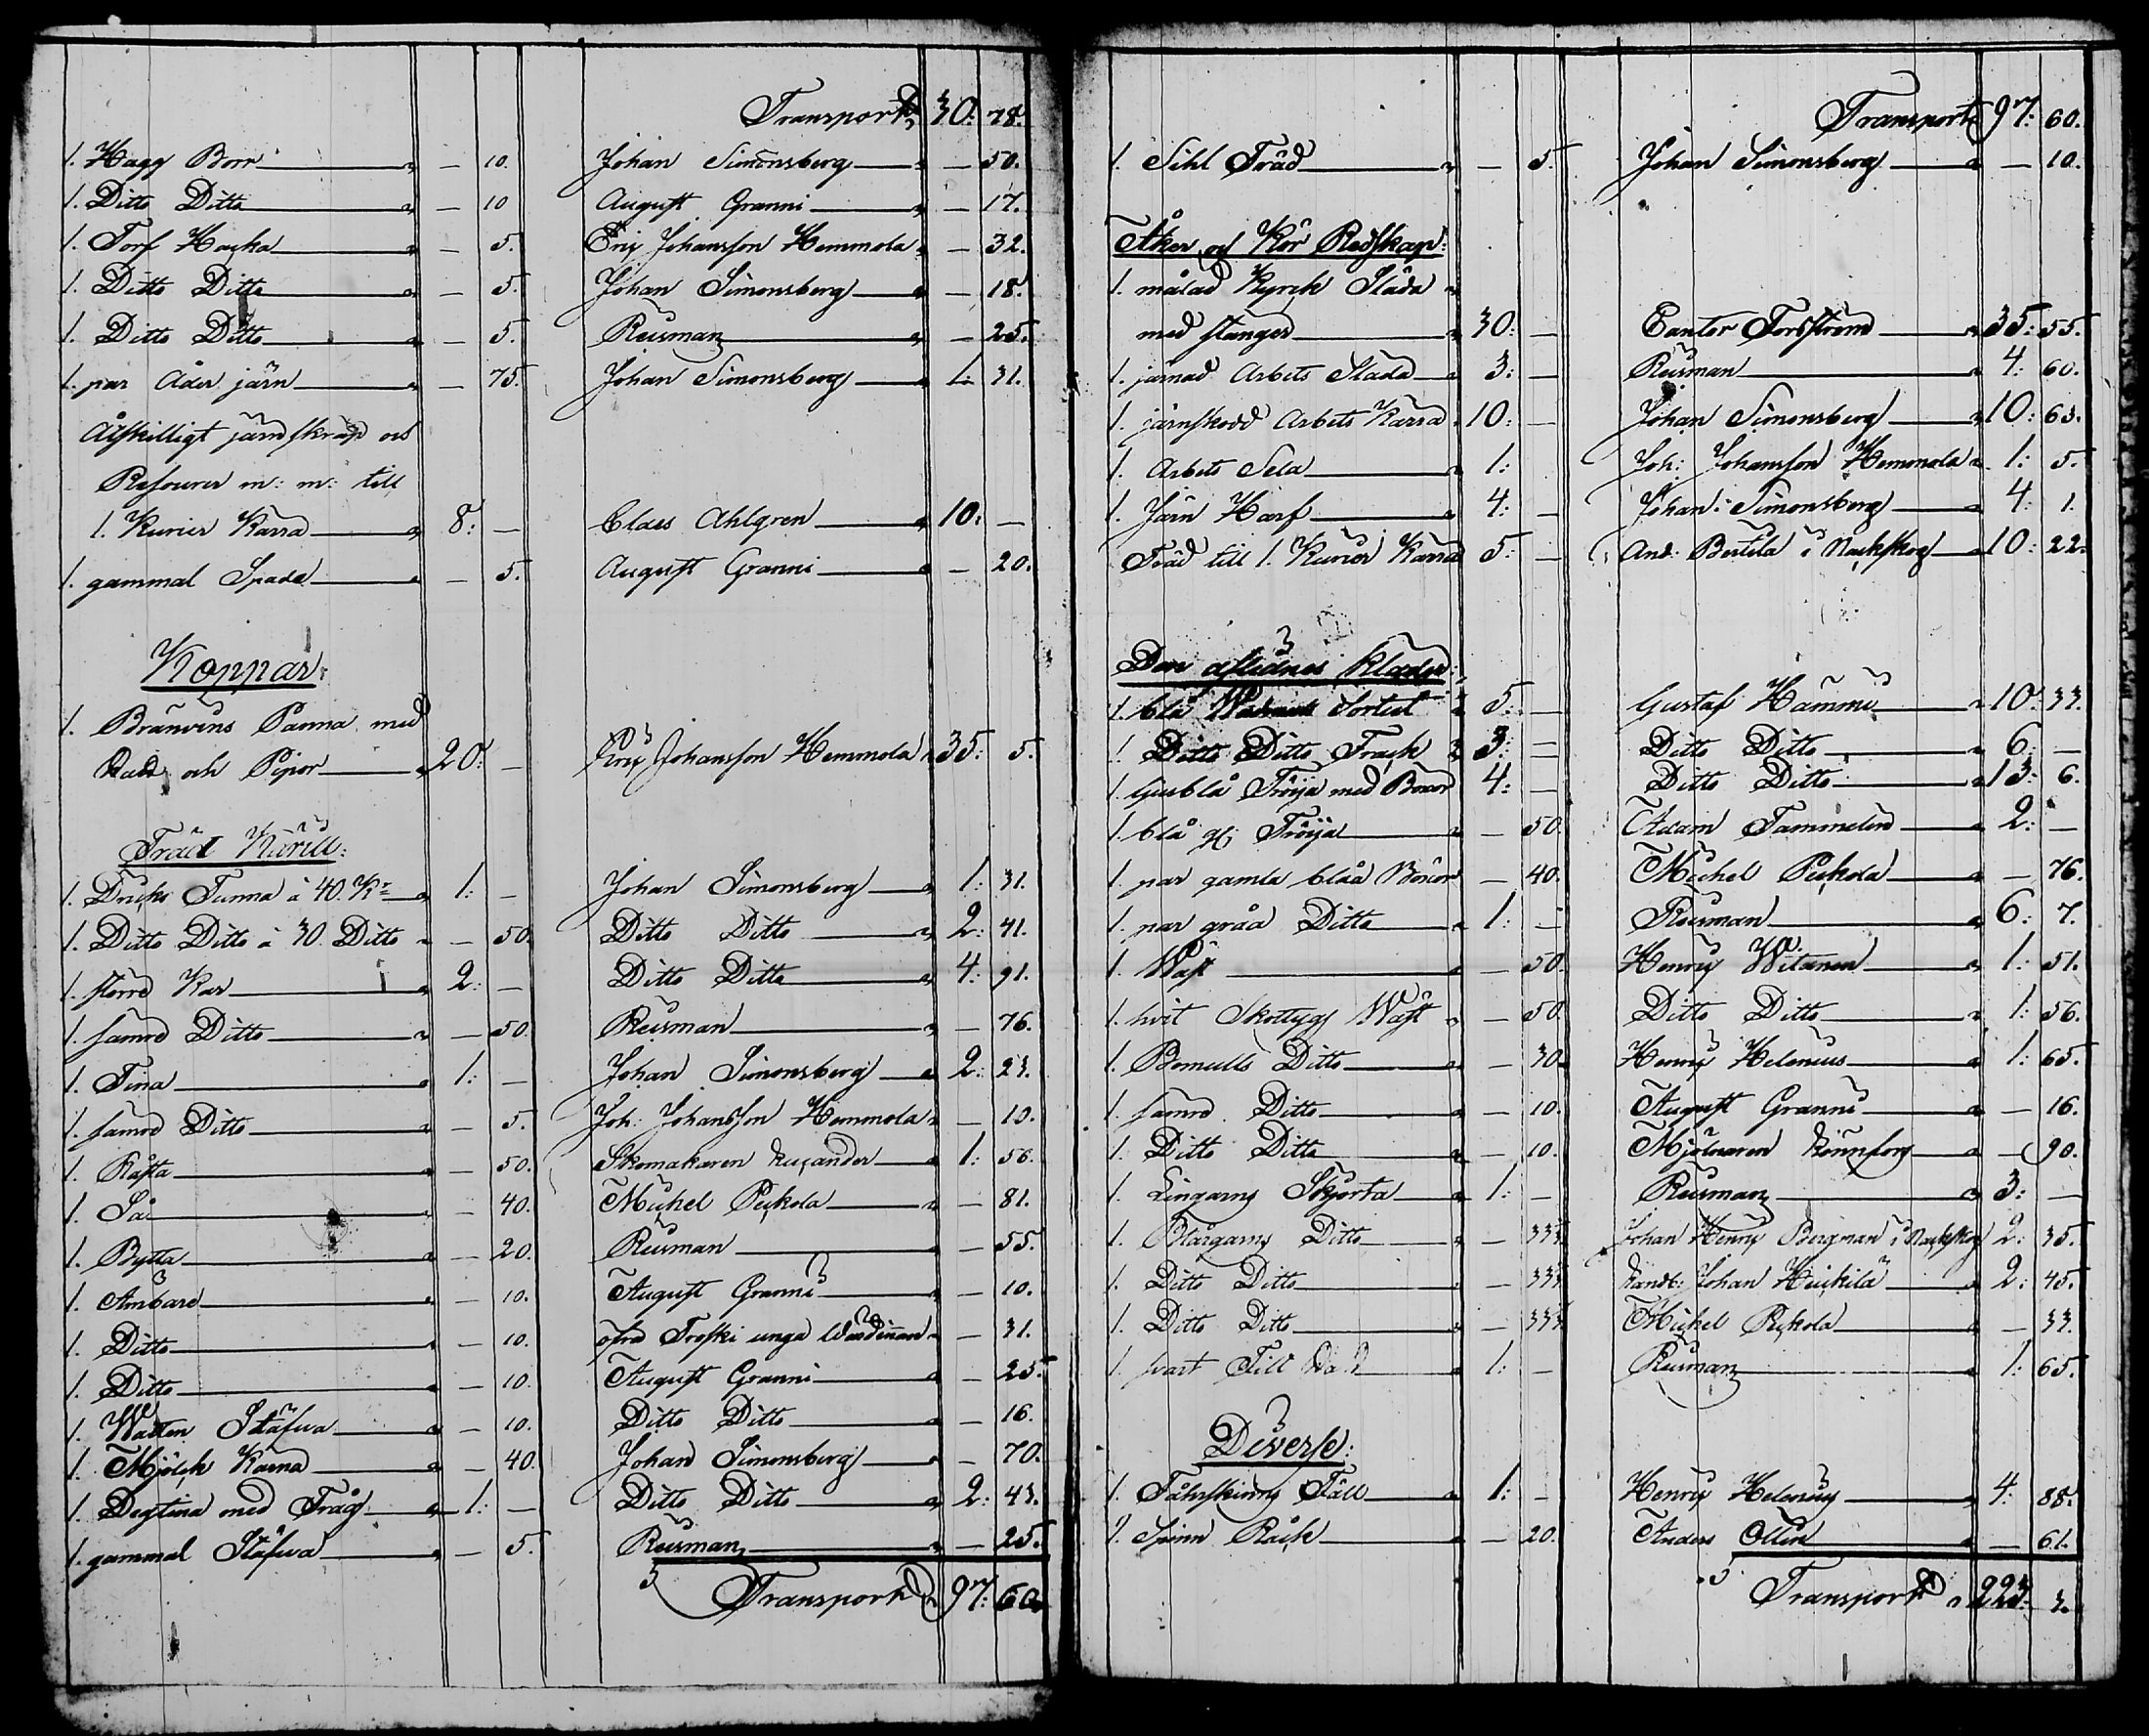 Transport 30: 78.
1. Hagg Borr — 10. Johan Simonsberg — 50.
1. Ditto Ditto — 10 August Granni — 17.
1. Torf Hacka — 5. Eric Johansson Hemmola — 32.
1. Ditto Ditto — 5. Johan Simonsberg — 18.
1. Ditto Ditto — 5. Reisman — 25.
1. par Åder järn — 75. Johan Simonsberg 1: 31.
Åtskilligt järnskrap och
Resourer m: m: till
1. Kurier Kärra 8: — Claes Ahlgren 10: —
1. gammal Spada — 5. August Granni — 20.
Koppar:
1. Bränvins Panna med
Hatt och Pipor 20: — Eric Johansson Hemmola 35: 5.
Träd Käríll:
1. Dricks Tunna à 40. Kr 1: — Johan Simonsberg 1: 31.
1. Ditto Ditto à 30. Ditto — 50. Ditto Ditto 2: 41.
1. större Kar 2: — Ditto Ditto 4: 91.
1. sämre Ditto — 50. Reisman — 76.
1. Tina 1: — Johan Simonsberg 2: 23.
1. sämre Ditto — 5. Joh: Johansson Hemmola — 10.
1. — 50. Skomakaren 1: 56.
1. Så — 40. Michel Peckola — 81.
1. Bytta — 20. Reisman — 55.
1. Ämbare — 10. August Granni — 10.
1. Ditto — 10. öfre Troski unga Wärdinnan — 31.
1. Ditto — 10. August Granni — 25.
1. Watten Stäfwa — 10. Ditto Ditto — 16.
1. Mjölck Kärna — 40. Johan Simonsberg — 70.
1. Degtina med Tråg 1: — Ditto Ditto 2: 43.
1. gammal Stäfwa — 5. Reisman — 25.
Transport 97: 60.
Transport 97: 60.
1. Sihl Tråd — 5. Johan Simonsberg — 10.
Åker och Kör Redskap:
1. målad Kyrck Släda
med stänger 30: — Cantor Forsström 35: 55.
1. järnad Arbets Släda 3: — Reisman 4: 60.
1. järnskodd Arbets Kärra 10: — Johan Simonsberg 10: 63.
1. Arbets Sela 1: Joh: Johansson Hemmola 1: 5.
1. Järn Harf 4: — Johan Simonsberg 4: 1.
Träd till 1. Kurier Kärra 5: — And: Bertila i Nackskog 10: 22.
Den aflidnes Kläder:
1. blå Wadmals Sortut 5: — Gustaf Hammi 10: 33.
1. Ditto Ditto Frack 3: — Ditto Ditto 6: —
1. ljusblå Tröija med Boxor 4: — Ditto Ditto 13: 6.
1. blå gl: Tröija — 50. Adam Tammelin 2: —
1. par gamla blåa Böxor — 40. Michel Peckola — 76.
1. par gråa Ditto 1: — Reisman 6: 7.
1. Wäst — 50. Henric Witanen 1: 51.
1. hvit Skottygs Wäst — 50. Ditto Ditto 1: 56.
1. Bomulls Ditto — 30. Henric Helenius 1: 65.
1. sämre Ditto — 10. August Granni — 16.
1. Ditto Ditto — 10. Mjölnaren Lönnfors — 90.
1. Lingarns Skjorta 1: — Reisman 3: —
1. Blårgarns Ditto — 33⅓ Johan Henric Bergman i Nackskog 2: 35.
1. Ditto Ditto — 33⅓ Landb: Johan Heickilä 2: 45.
1. Ditto Ditto — 33⅓ Michel Peckola — 33.
1. svart Filt Hatt 1: — Reisman 1: 65.
Diverse:
1. Fåhrskinns Fäll 1: — Henric Helenius 4: 88.
1. Spinn Råck — 20. Anders Ollin — 61.
Transport 223: 3.